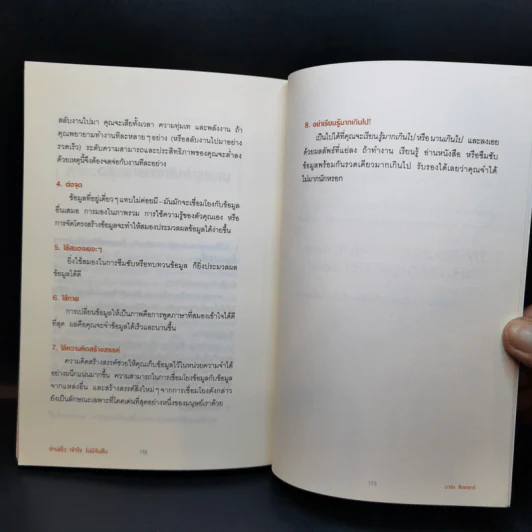 สลับงานไปมา คุณจะเสียทั้งเวลา ความทุ่มเท และพลังงาน ถ้า
คุณพยายามทำงานทีละหลายๆ อย่าง (หรือสลับงานไปมาอย่าง
รวดเร็ว) ระดับความสามารถและประสิทธิภาพของคุณจะต่ำลง
ด้วยเหตุนี้จึงต้องจดจ่อกับงานทีละอย่าง
4. ต่อจุด
ข้อมูลที่อยู่เดี่ยวๆ แทบไม่ค่อยมี – มันมักจะเชื่อมโยงกับข้อมูล
อื่นเสมอ การมองในภาพรวม การใช้ความรู้ของตัวคุณเอง หรือ
การจัดโครงสร้างข้อมูลจะทำให้สมองประมวลผลข้อมูลได้ง่ายขึ้น
5. ใช้สมองเยอะๆ
ยิ่งใช้สมองในการซึมซับหรือทบทวนข้อมูล ก็ยิ่งประมวลผล
ข้อมูลได้ดี
6. ใช้ภาพ
การเปลี่ยนข้อมูลให้เป็นภาพคือการพูดภาษาที่สมองเข้าใจได้ดี
ที่สุด ผลคือคุณจะจำข้อมูลได้เร็วและนานขึ้น
7. ใช้ความคิดสร้างสรรค์
ความคิดสร้างสรรค์ช่วยให้คุณเก็บข้อมูลไว้ในหน่วยความจำได้
อย่างผนึกแน่นมากขึ้น ความสามารถในการเชื่อมโยงข้อมูลกับข้อมูล
จากแหล่งอื่น และสร้างสรรค์สิ่งใหม่ๆ จากการเชื่อมโยงดังกล่าว
ยังเป็นลักษณะเฉพาะที่โดดเด่นที่สุดอย่างหนึ่งของมนุษย์เราด้วย
อ่านเร็ว เข้าใจ ไม่มีวันลืม
8. อย่าเรียนรู้มากเกินไป!
เป็นไปได้ที่คุณจะเรียนรู้มากเกินไปหรือนานเกินไป และลงเอย
ด้วยผลลัพธ์ที่แย่ลง ถ้าทำงาน เรียนรู้ อ่านหนังสือ หรือซึมซับ
ข้อมูลพร้อมกันรวดเดียวมากเกินไป รับรองได้เลยว่าคุณจำได้
ไม่มากนักหรอก